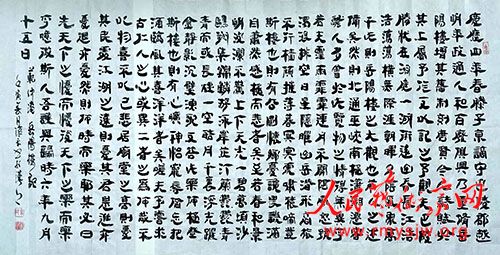 慶曆四年春滕子京謫守巴陵郡越
明年政通人和百廢具興乃重修岳
陽樓增其舊制刻唐賢今人詩賦於
其上屬予作文以記之予觀夫巴陵
勝狀在洞庭一湖銜遠山吞長江浩
浩蕩蕩橫無際涯朝暉夕陰氣象萬
千此則岳陽樓之大觀也前人之述
備矣然則北通巫峽南極瀟湘遷客
騷人多會於此覽物之情得無異乎
若夫霪雨霏霏連月不開陰風怒號
濁浪排空日星隱曜山岳潛形商旅
不行檣傾楫摧薄暮冥冥虎嘯猿啼登
斯樓也則有去國懷鄉憂讒畏譏滿
目蕭然感極而悲者矣至若春和景
明波瀾不驚上下天光一碧萬頃沙
鷗翔集錦鱗游泳岸芷汀蘭郁郁青
青而或長煙一空皓月千里浮光躍
金靜影沉璧漁歌互答此樂何極登
斯樓也則有心曠神怡寵辱偕忘把
酒臨風其喜洋洋者矣嗟夫予嘗求
古仁人之心或異二者之為何哉不
以物喜不以己悲居廟堂之高則憂
其民處江湖之遠則憂其君是進亦
憂退亦憂然則何時而樂耶其必曰
先天下之憂而憂後天下之樂而樂
乎噫微斯人吾誰與歸時六年九月
十五日
范仲淹岳陽樓記
www.rmysjw.org